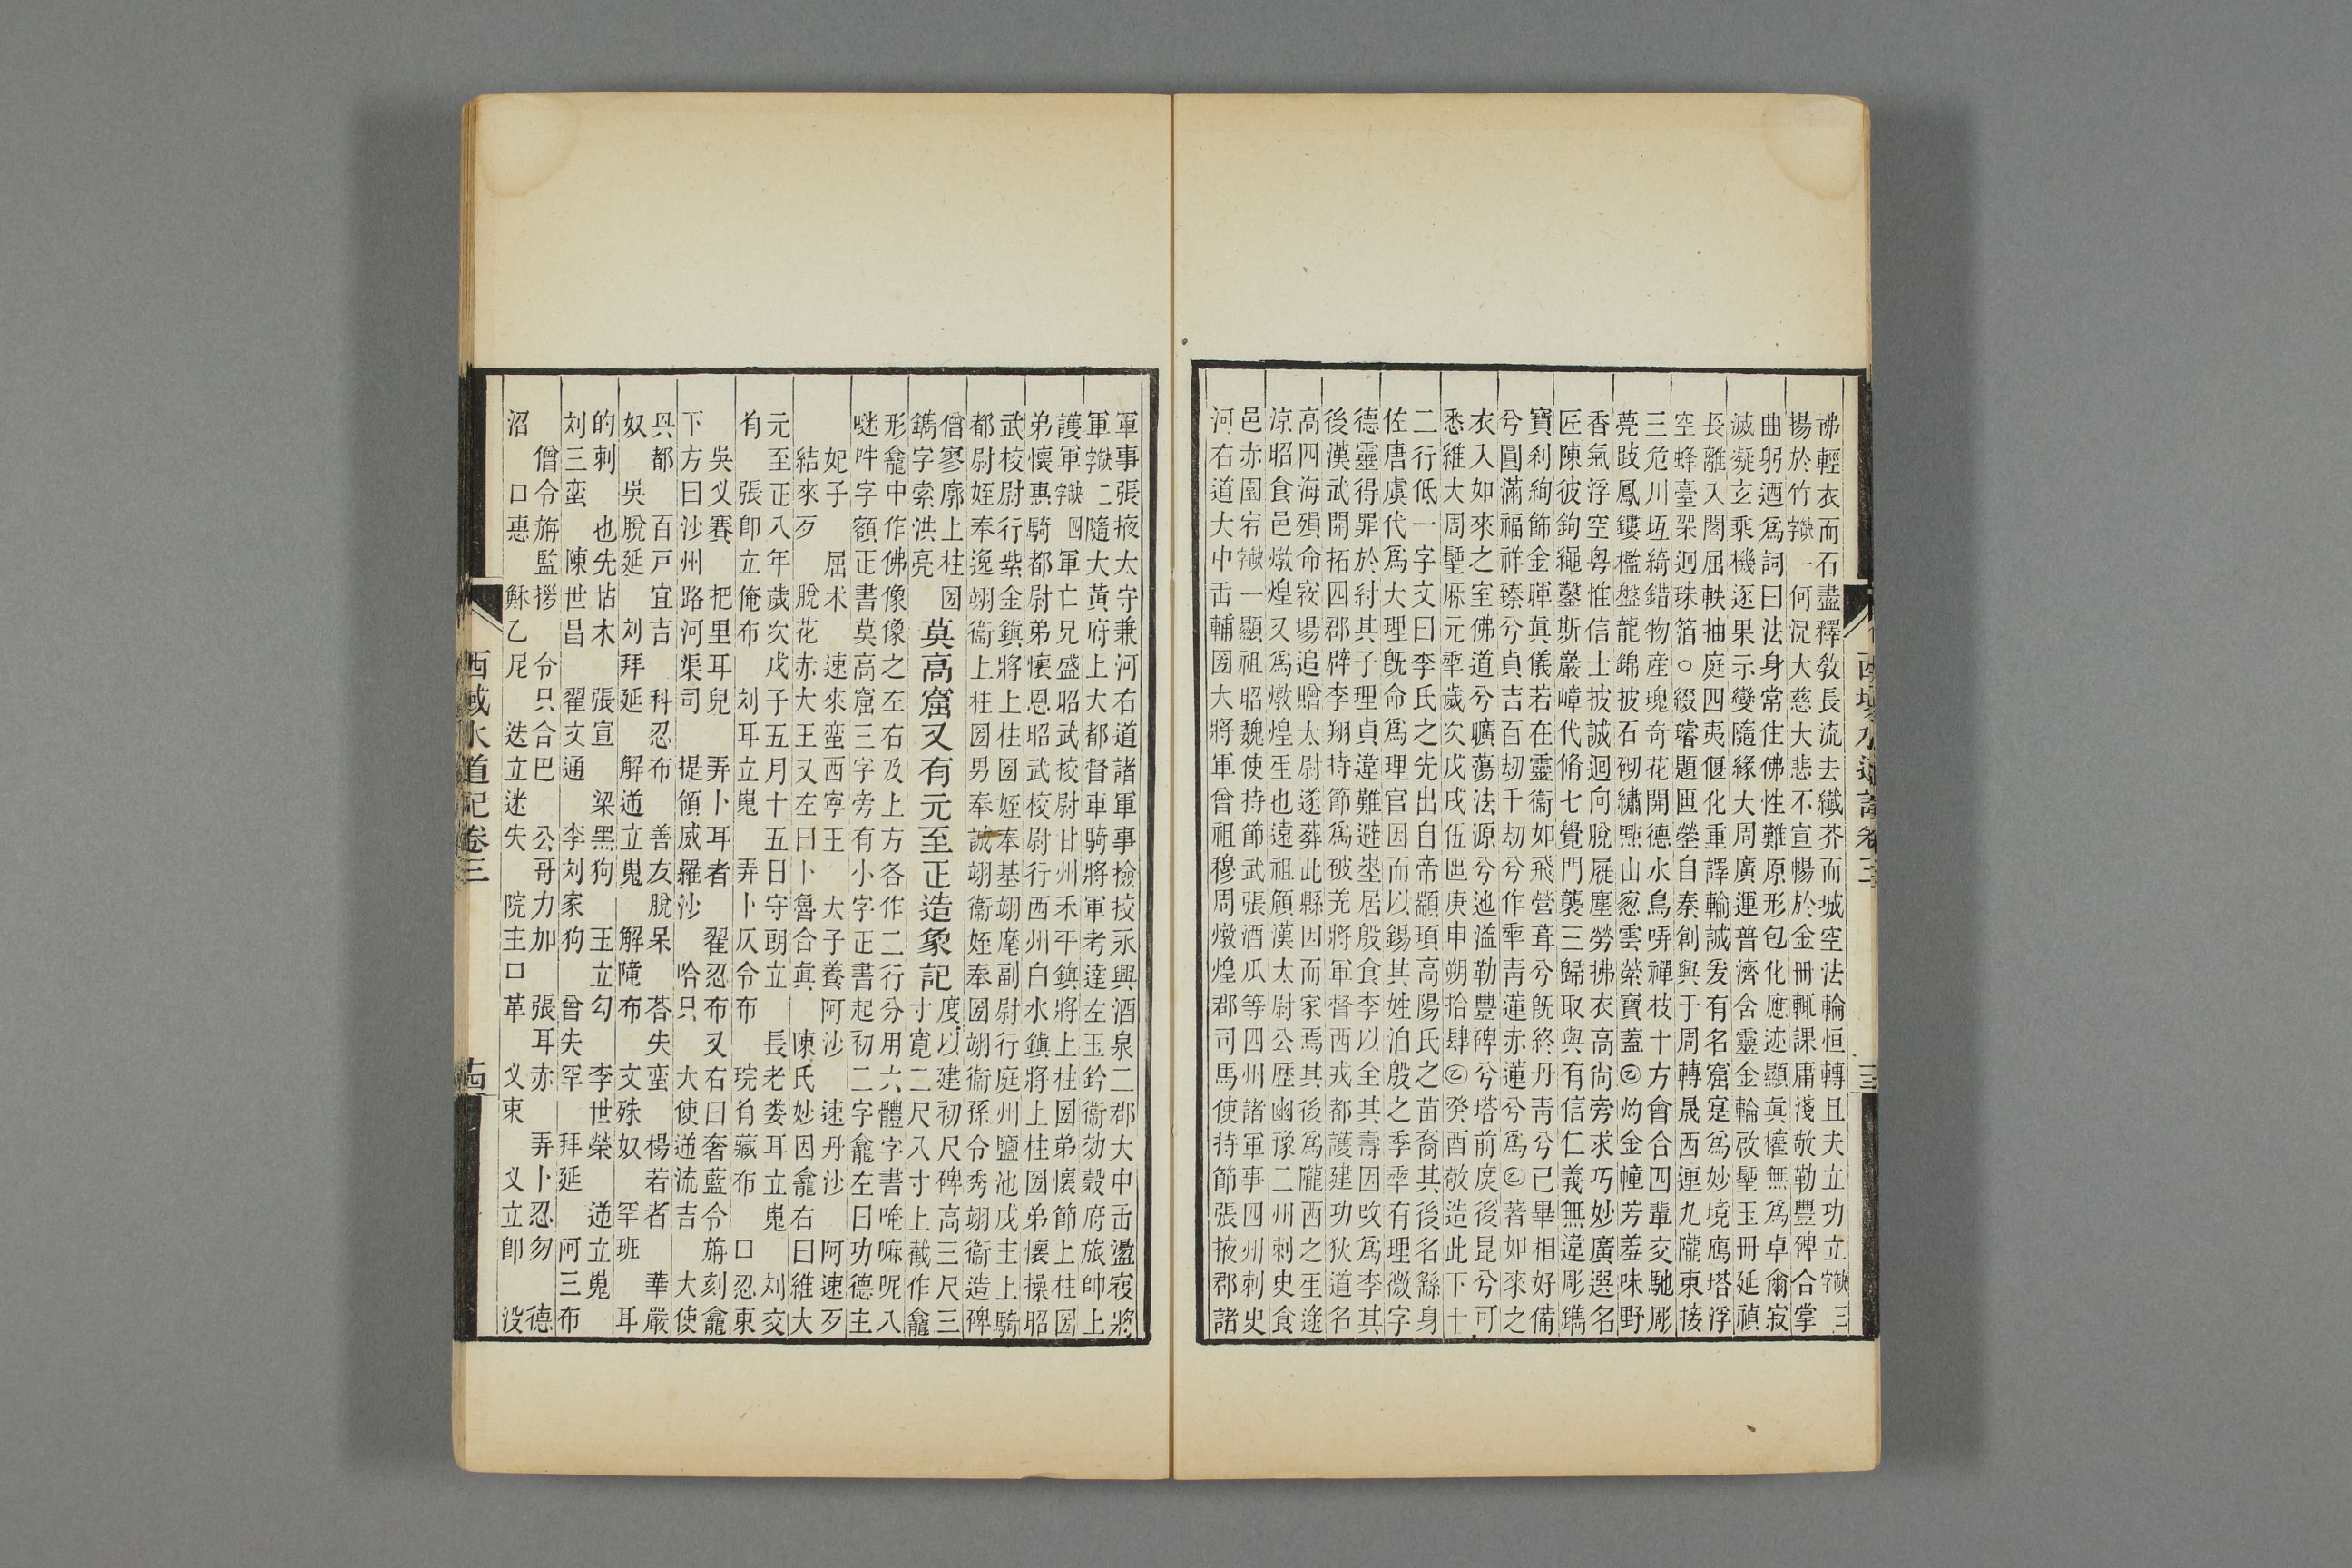 彿輕衣而石盡釋教長流去纖芥而城空法輪恒轉且夫立功立字缺三
揚於竹字缺一何況大慈大悲不宣暢於金冊輒課庸淺敬勒豐碑合掌
曲躬迺爲詞曰法身常住佛性難原形包化應迹顯真權無爲卓爾寂
滅凝玄乘機逐果示變隨緣大周廣運普濟含靈金輪啟聖玉冊延禎
長離入閣屈軼抽庭四夷偃化重譯輸誠爰有名窟寔爲妙境鴈塔浮
空蜂臺架迥珠箔○綴璿題匝塋自秦創興于周轉晟西連九隴東接
三危川坻綺錯物産瑰奇花開德水鳥哢禪枝十方會合四輩交馳彫
甍跂鳳鏤檻盤龍錦披石砌繡㸃山窓雲縈寶蓋㋪灼金幢芳羞味野
香氣浮空粤惟信士披誠迴向脫屣塵勞拂衣高尚旁求巧妙廣選名
匠陳彼鉤繩鑿斯巖嶂代脩七覺門襲三歸取與有信仁義無違彫鐫
寶刹絢飾金暉真儀若在靈衞如飛營葺兮旣終丹靑兮已畢相好備
兮圓滿福祥臻兮貞吉百刼千刼兮作𠡦靑蓮赤蓮兮爲㋪著如來之
衣入如來之室佛道兮曠蕩法源兮迆溢勒豐碑兮塔前庻後昆兮可
悉維大周聖厤元𠡦歲次戊戌伍匝庚申朔拾肆㋪癸酉敬造此下十
二行低一字文曰李氏之先出自帝顓頊高陽氏之苗裔其後名繇身
佐唐虞代爲大理旣命爲理官因而以錫其姓洎殷之季𠡦有理微字
德靈得罪於紂其子理貞違難避埊居殷食李以全其壽因攺爲李其
後漢武開拓四郡辟李翔持節爲破羌將軍督西戎都護建功狄道名
高四海殞命寇場追贈太尉遂葬此縣因而家焉其後爲隴西之𤯔逺
涼昭食邑燉煌又爲燉煌𤯔也遠祖頠漢太尉公歴幽豫二州刺史食
邑赤圍宕字缺一顯祖昭魏使持節武張酒瓜等四州諸軍事四州刺史
河右道大中𠱰輔圀大將軍曾祖穆周燉煌郡司馬使持節張掖郡諸
軍事張掖太守兼河右道諸軍事檢挍永興酒泉二郡大中𠱰盪寇將
軍字缺二隨大黃府上大都督車騎將軍考達左玉鈐衞効穀府旅帥上
護軍字缺四軍亡兄盛昭武校尉甘州禾平鎭將上柱圀弟懷節上柱圀
弟懷惠騎都尉弟懷恩昭武校尉行西州白水鎭將上柱圀弟懷操昭
武校尉行紫金鎭將上柱圀姪奉基翊麾副尉行庭州鹽池戍主上騎
都尉姪奉逸翊衞上柱圀男奉誠翊衞姪奉圀翊衞孫令秀翊衞造碑
僧寥廓上柱圀
鐫字索洪亮
莫高窟又有元至正造象記
度以建初尺碑高三尺三
寸寬二尺入寸上截作龕
形龕中作佛像像之左右及上方各作二行分用六體字書唵嘛呢八
咪吽字額正書莫高窟三字旁有小字正書起初二字龕左曰功德主
妃子　屈术　速來蛮西寧王　太子養阿沙　速丹沙　阿速歹
結來歹　脫花赤大王又左曰卜魯合真　陳氏妙因龕右曰維大
元至正八年歲次戊子五月十五日守朗立　長老娄耳立嵬　刘交
有　張卽立俺布　刘耳立嵬　弄卜仄令布　琓肖藏布　口忍東
吳义賽　把里耳兒　弄卜耳者　翟忍布又右曰奢藍令旃刻龕
下方曰沙州路河渠司　提領威羅沙　哈只　大使逬流吉　大使
㒷都　百戸宜吉　科忍布　善友脫呆　荅失蛮　楊若者　華嚴
奴　吳脫延　刘拜延　解逬立嵬　解隆布　文殊奴　罕班　耳
的刺　也先怗木　張宣　梁黑狗　王立勾　李世榮　逬立嵬
刘三蛮　陳世昌　翟文通　李刘家狗　曾失罕　拜延　阿三布
僧令旃監搙　令只合巴　公哥力加　張耳赤　弄卜忍勿　德
沼　口惠　穌乙尼　迭立迷失　院主口革　义束　义立卽　没
西域水道記卷三
十四
西域水道記卷三
十三